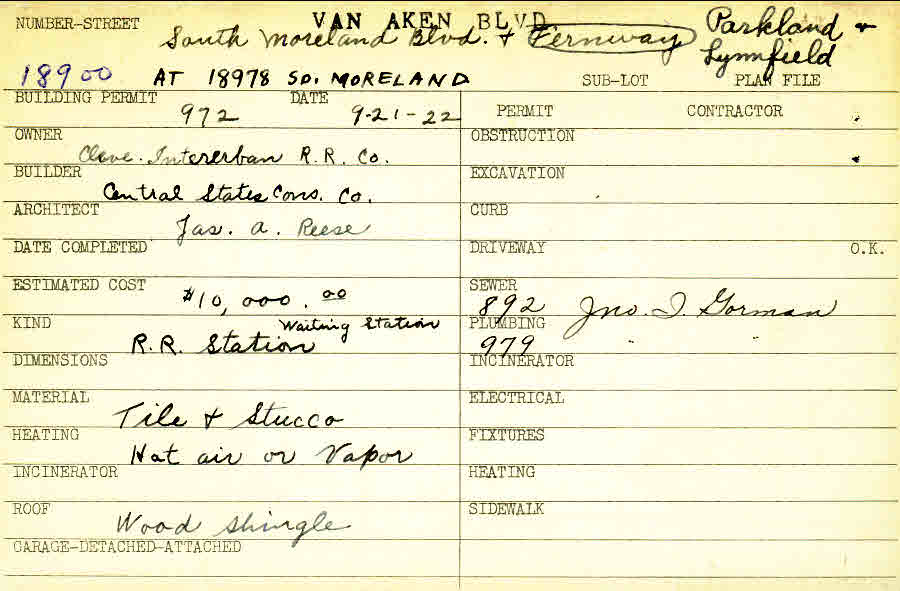 NUMBER-STREET VAN AKEN BLVD Parkland &
South Moreland Blvd. & Fernway Lynnfield
18900 AT 18978 SO. MORELAND SUB-LOT PLAN FILE
BUILDING PERMIT 972 DATE 9-21-22 PERMIT CONTRACTOR
OWNER Cleve. Intererban R.R. Co. OBSTRUCTION
BUILDER Central States Cons. Co. EXCAVATION
ARCHITECT Jas. A. Reese CURB
DATE COMPLETED DRIVEWAY O.K.
ESTIMATED COST $10,000.00 SEWER 892 Jno. I. Gorman
KIND R.R. Station Waiting Station PLUMBING 979 " "
DIMENSIONS INCINERATOR
MATERIAL Tile & Stucco ELECTRICAL
HEATING Hat air or Vapor FIXTURES
INCINERATOR HEATING
ROOF Wood shingle SIDEWALK
GARAGE-DETACHED-ATTACHED